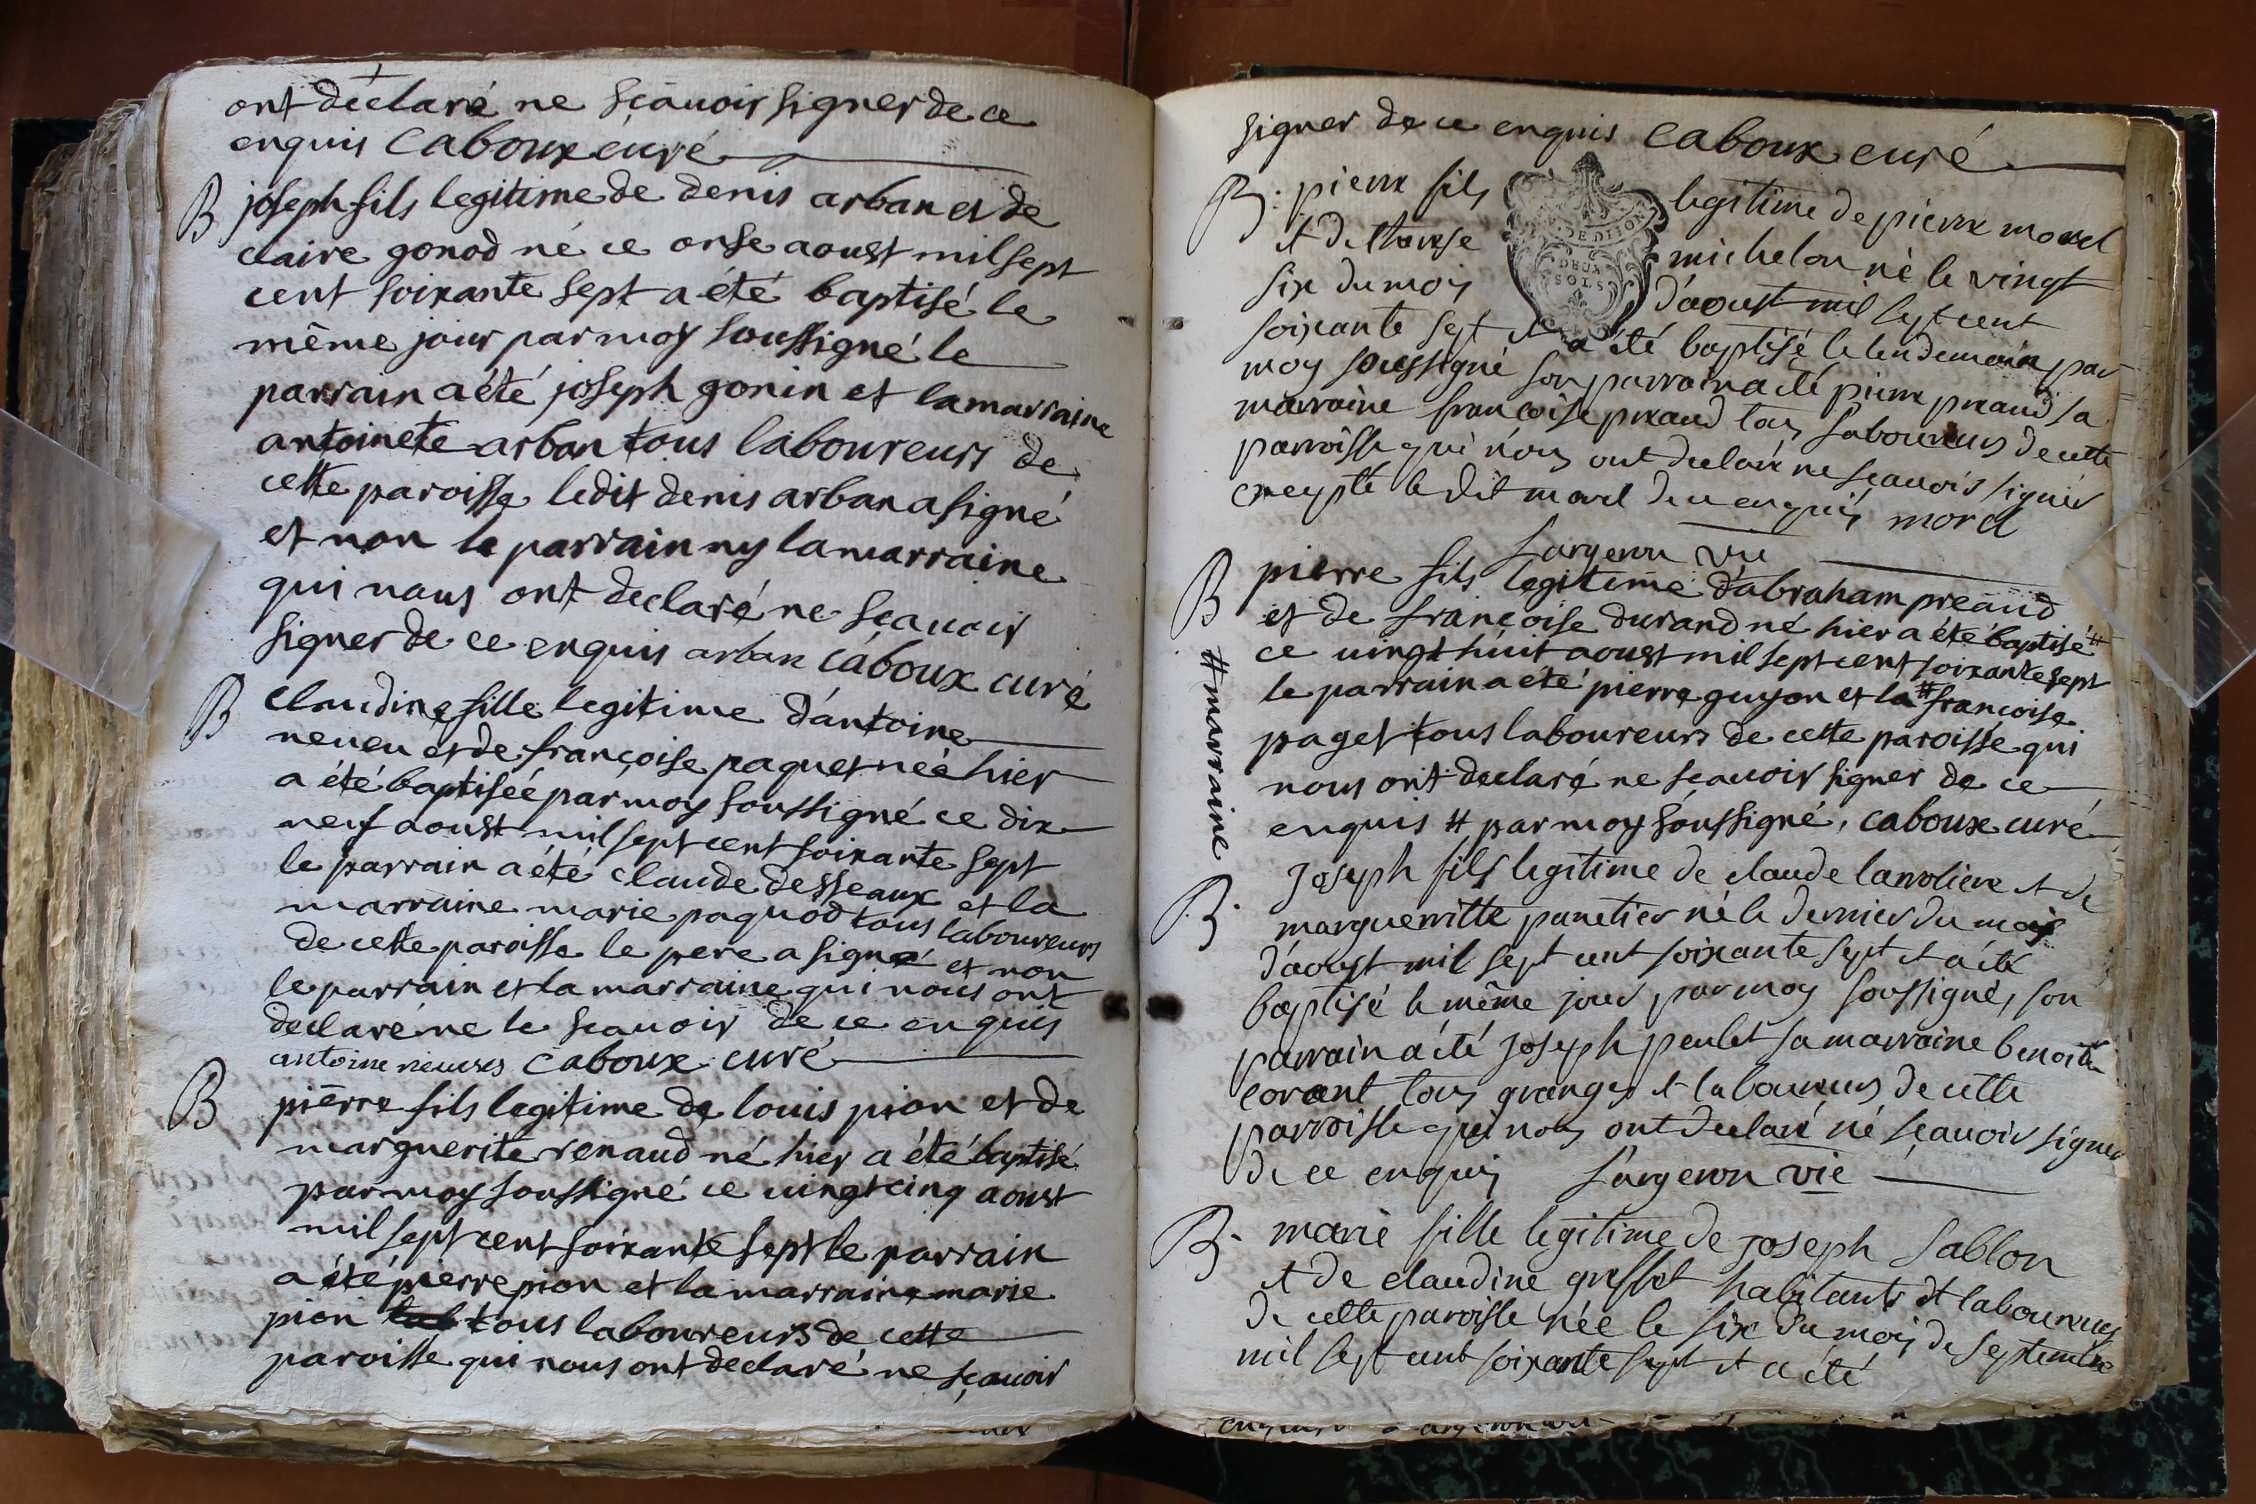 ont déclaré ne sçauoir signer de ce
enquis Caboux curé
B joseph fils legitime de denis arban et de
claire gonod né ce onse aoust mil sept
cent soixante sept a été baptisé le
même jour par moy soussigné le
parrain a été joseph gonin et la marraine
antoinete arban tous laboureurs de
cette paroisse ledit denis arban a signé
et non le parrain ny la marraine
qui nous ont declaré ne sçauoir
signer de ce enquis arban Caboux curé
B Claudine fille legitime d'antoine
neueu et de françoise paquet née hier
a été baptiséé par moy soussigné ce dix
neuf aoust mil sept cent soixante sept
le parrain a été claude desseaux et la
marraine marie paquod tous laboureurs
de cette paroisse le pere a signé et non
le parrain et la marraine qui nous ont
declaré ne le sçauoir de ce enquis
antoine Caboux curé
B pierre fils legitime de louis pion et de
marguerite renaud né hier a été baptisé
par moy soussigné ce uingt cinq aoust
mil sept cent soixante sept le parrain
a été pierre pion et la marraine marie
pion tous laboureurs de cette
paroisse qui nous ont declaré ne sçauoir
signer de ce enquis Caboux curé
DE DIJON
DEUX
SOLS
B: pierre fils legitime de pierre morel
et de therese michelon né le vingt
six du mois d'aoust mil sept cent
soixante sept et a été baptisé le lendemain par
moy soussigné son parrain a été pierre preaud sa
marraine françoise preaud tous laboureurs de cette
parroisse qui nous ont declaré ne sçauoir signer
excepté le dit morel de ce enquis morel
Largeron vie
B pierre fils legitime d'abraham preaud
et de françoise durand né hier a été baptisé #
ce uingt huit aoust mil sept cent soixante sept
le parrain a été pierre guyon et la # francoise
paget tous laboureurs de cette paroisse qui
nous ont declaré ne sçauoir signer de ce
enquis # par moy soussigné, caboux curé
# marraine
B. Joseph fils legitime de claude larroliere et de
marguerritte panetier né le dernier du mois
d'aoust mil sept cent soixante sept et a été
baptisé le même jour par moy soussigné, son
parrain a été Joseph peulet sa marraine benoite
corant tous grangers et laboureurs de cette
parroisse qui nous ont declaré né sçauoir signer
de ce enquis Largeron vie
B. marie fille legitime de Joseph Sablon
et de claudine greffet habitants et laboureurs
de cette paroisse née le six du mois de septembre
mil sept cent soixante sept et a été